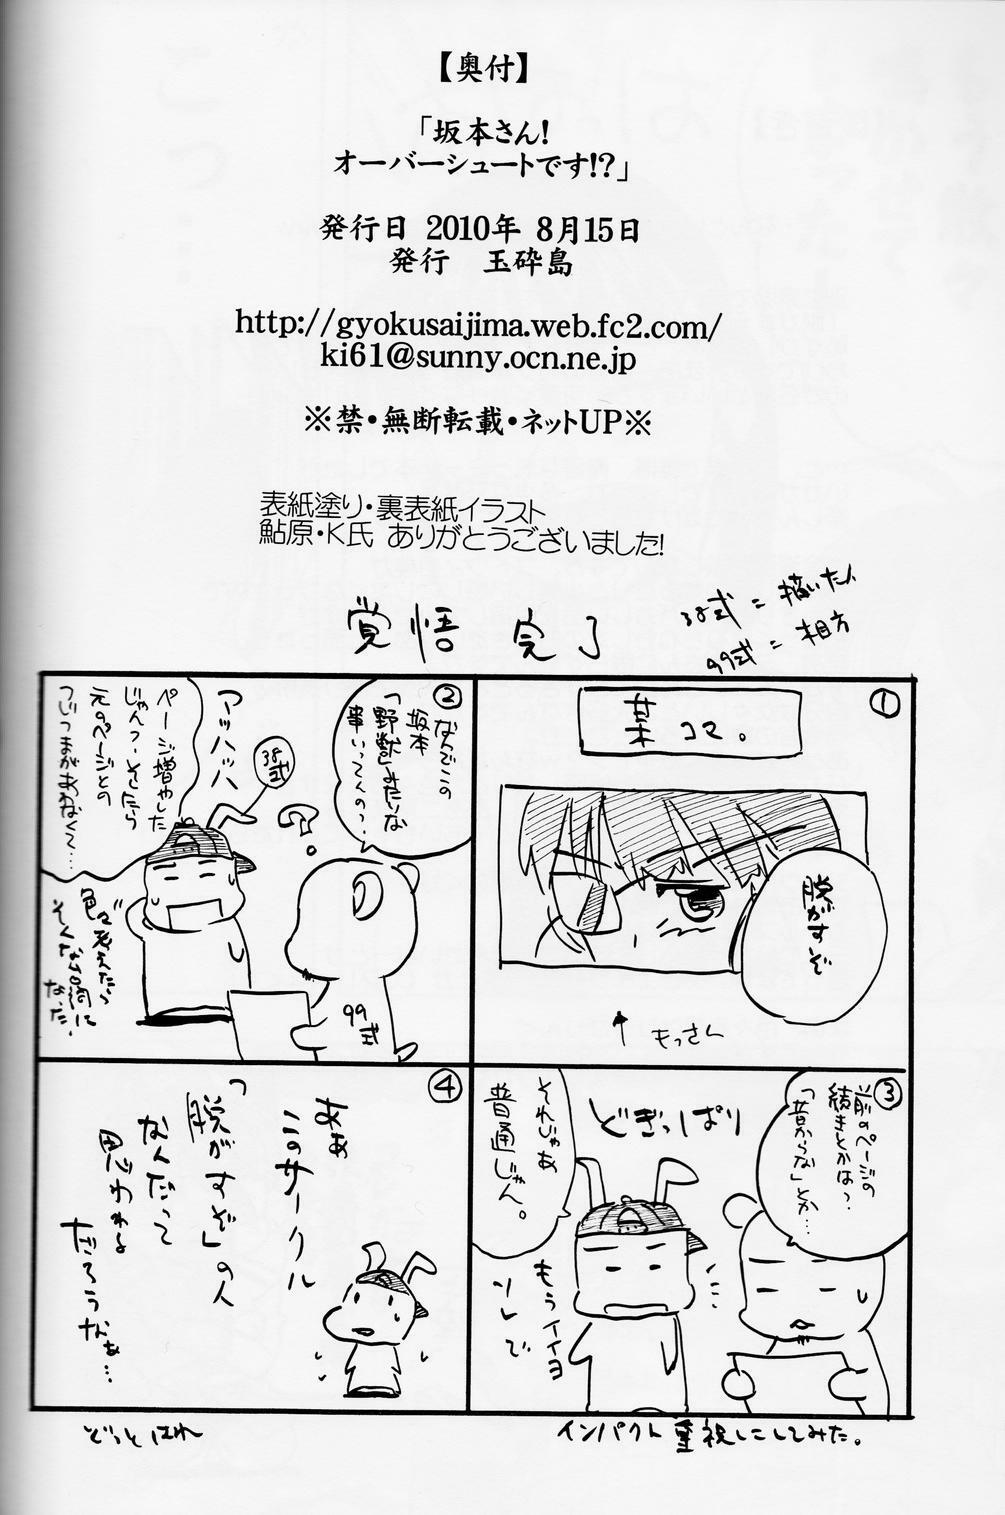 【奥付】
「坂本さん!
オーバーシュートです!?」
発行日 2010年 8月15日
発行 玉砕島
http://gyokusaijima.web.fc2.com/
ki61@sunny.ocn.ne.jp
※禁・無断転載・ネットUP※
表紙塗り・裏表紙イラスト
鮎原・K氏 ありがとうございました!
覚悟 完了
38式 = 描いた人
99式 = 相方
①
某コマ。
脱がすぞ
↑ もっさん
②
なんでこの
坂本
「野獣」みたいな
事いってんの?
?
38式
アッハッハ
ページ増やした
じゃんー そしたら
元のページとの
つじつまがあわなくて…
色々考えたら
そんな台詞に
なった。
99式
③
前のページの
続きとかは?
「昔からな」とか…
どぎっぱり
それじゃあ
普通じゃん。
もうイイヨ
ソレで
④
ああ
このサークル
「脱がすぞ」の人
なんだって
思われる
だろうなぁ…
どっとはれ
インパクト重視にしてみた。